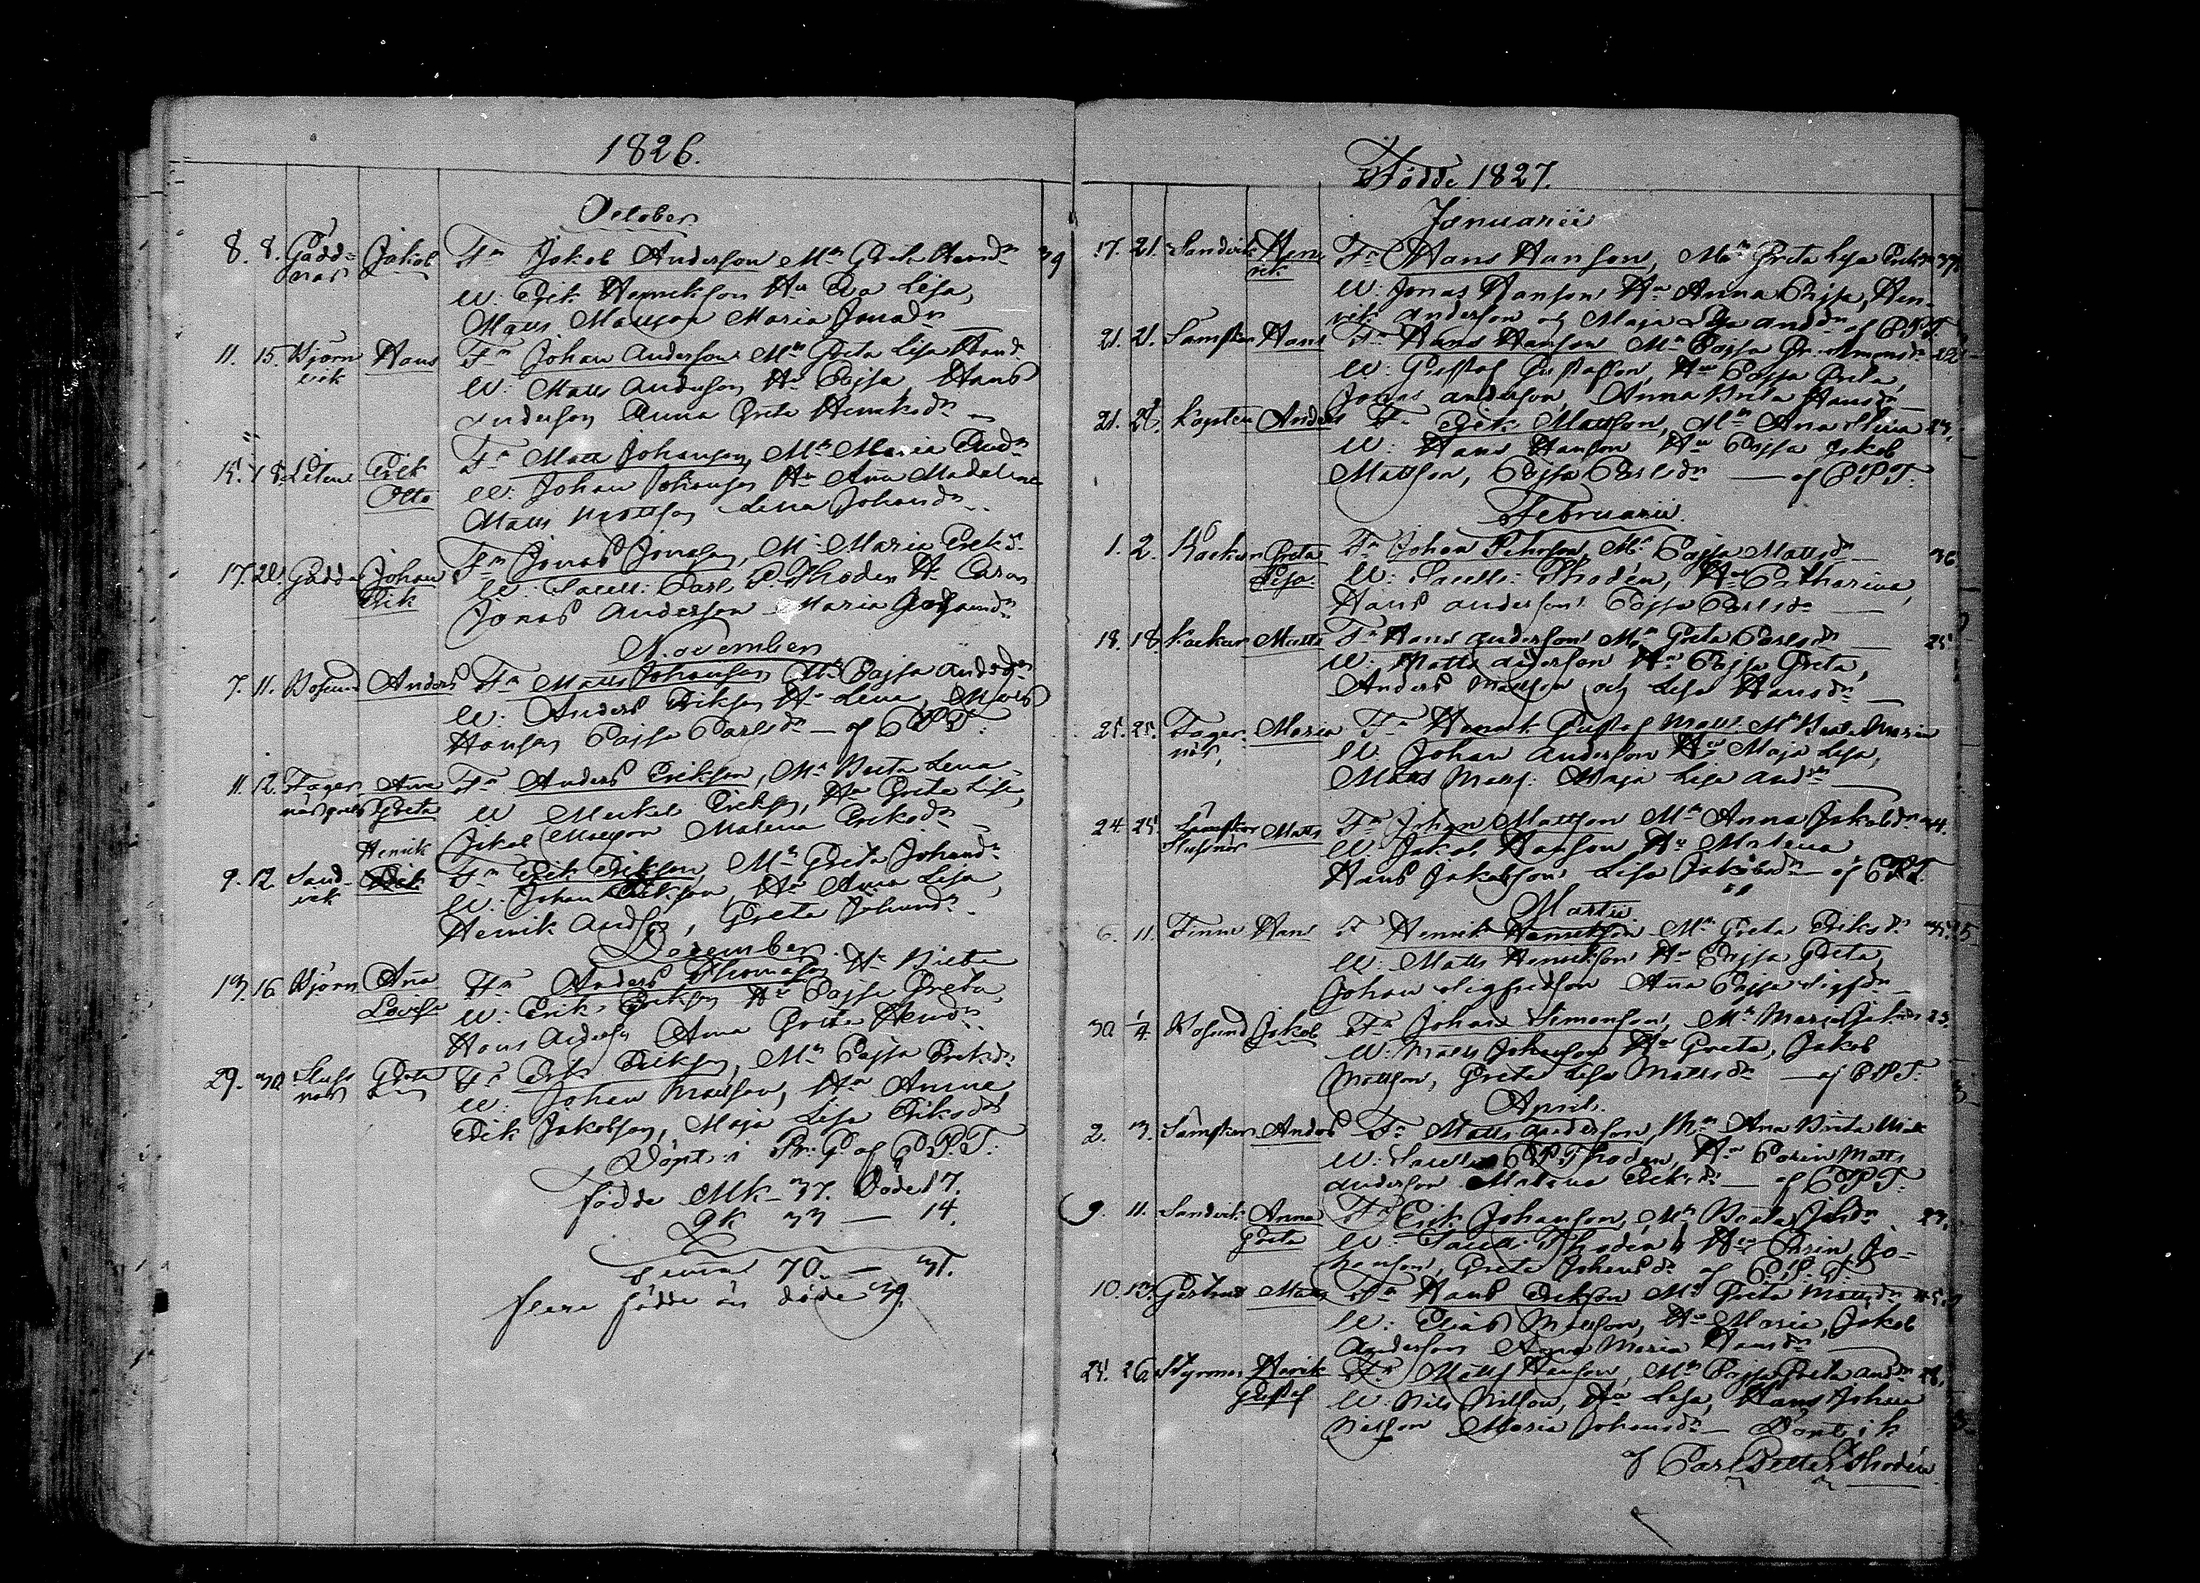 1826.
October
8. 8. Gädd= Jakob Fr Jakob Anderson Mr Greta Henrdr 39
näs W: Erik Henrikson Hu Eva Lisa,
Matts Mattson Maria Jonadr
11. 15. Björn Hans Fr Johan Anderson Mr Greta Lisa Hansdr
vik W: Matts Anderson Hu Cajsa, Hans
Anderson Anna Greta Henriksdr
15. 18. Liten Erik Fr Matts Johanson, Mr Maria
Otto W: Johan Johanson Hu Anna Madalena
Matts Mattson Lena Johansdr
17. 20. Gädda Johan Fr Jonas Jonason, Mr Maria Eriksd
Erik W: Sacell: Carl P Thodén Hu Carin
Jonas Anderson Maria
November
7. 11. Rosund Anders Fr Matts Johanson Mr Cajsa Andsdr
W: Anders Erikson Hu Lena,
Hanson Cajsa Carlsdr — af C P T:
11. 12. Fager Anna Fr Anders Erikson, Mr Brita Lena
näs Greta W Mickel Erikson, Hu Greta Lisa,
Jakob Mattson Malena Eriksdr
Henrik
9. 12. Sand- Erik Fr Erik Erikson, Mr Greta Johansdr
vik W: Johan Erikson, Hu Anna Lisa,
Henrik Andson, Greta Johansdr
December.
13. 16. Björn Anna Fr Anders Thomason Hu Brita
Lovisa W: Erik Erikson Hu Cajsa Greta,
Hans Anderson Anna Greta Hendr
29. 30. Sluss Greta Fr Erik Erikson, Mr Cajsa Eriksdr
näs W: Johan Mattson, Hu Anna
Erik Jakobson, Maja Lisa Eriksdr
Döpt i Pr: G af C. P. T:
Födde Mk— 37. Döde 17.
Qk 33 — 14.
Summa 70. — 31.
flere födde än döde 39.
Födde 1827.
Januarii
17. 21. Sandvik Hen- Fr Hans Hanson, Mr Greta Lisa Eriksdr 37
rik W: Jonas Hanson Hu Anna Cajsa, Hen-
rik Anderson og Maja Lisa Andsdr af C. P. T.
21. 21. Lamsker Hans Fr Hans Hanson Mr Cajsa Gr. Simonsdr 22
W: Gustaf Gustafson, Hu Cajsa Greta,
Jonas Anderson, Anna Brita Hansdr
21. 28. Kapten Anders Fr Erik Mattson, Mr Anna Stina 23.
W: Hans Hanson Hu Cajsa Jakob
Mattson, Cajsa Carlsdr — af C P T:
Februarii
1. 2. Kackur Greta Fr Johan Pehrson, Mr Cajsa Mattsdr 36
Lisa. W: Sacell: Thodén, Hu Catharina,
Hans Anderson Cajsa Carlsdr
18. 18. Kackur Matts Fr Hans Anderson Mr Greta Carlsdr 25
W: Matts Anderson Hu Cajsa Greta,
Anders Mattson och Lisa Hansdr
25. 25. Fager Maria Fr Henrik Gustaf Matts: Mr Beata Maria
näs, W Johan Anderson Hu Maja Lisa,
Matts Matts: Maja Lisa Andsdr
24. 25. Lamsker Matts Fr Johan Mattson Mr Anna Jakobsdr 44.
Slussnäs W Jakob Hanson Hu Malena
Hans Jakobson Lisa Jakobsdr — af C P T.
Martii
6. 11. Finne Hans Fr Henrik Henrikson Mr Greta Eriksdr 35
W: Matts Henrikson Hu Cajsa Greta
Johan Sigfridson Anna Cajsa Sigfsdr
30 1/4 Rosund Jakob Fr Johan Simonson, Mr Maria 23.
W: Matts Johanson Hu Greta, Jakob
Mattson, Greta Lisa Mattsdr — af C P T:
April.
2. 3. Lamsker Anders Fr Matts Anderson, Mr Anna Brita
W: Sacell: C P Thodén, Hu Carin Matts
Anderson Malena Eriksdr — af C P T:
9. 11. Sandvik Anna Fr Erik Johanson, Mr Beata 23.
Greta W: Sacell: Thodén, Hu Carin, Jo-
hanson, Greta Johansdr af C. P. T.
10. 13. Matts Fr Hans Erikson Mr Greta Mattsdr 45.
W: Elias Mattson, Hu Maria, Jakob
Anderson Anna Maria Hansdr
25. 26. Styrmans Henrik Fr Matts Hanson, Mr Cajsa Greta Andr 28.
Gustaf W: Nils Nilson, Hu Lisa, Hans Johan
Nilson Maria Johansdr — Döpt i k
af Carl Petter Thodén